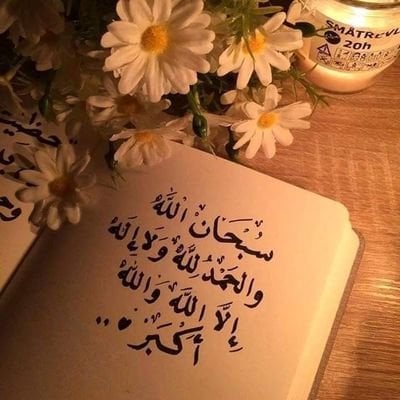 SMÅTREVL
20h
سُبْحَانَ اللَّهِ
وَالحَمْدُ لِلَّهِ وَلَا إِلَهَ
إِلَّا اللَّهُ وَاللَّهُ
أَكْبَرُ ..